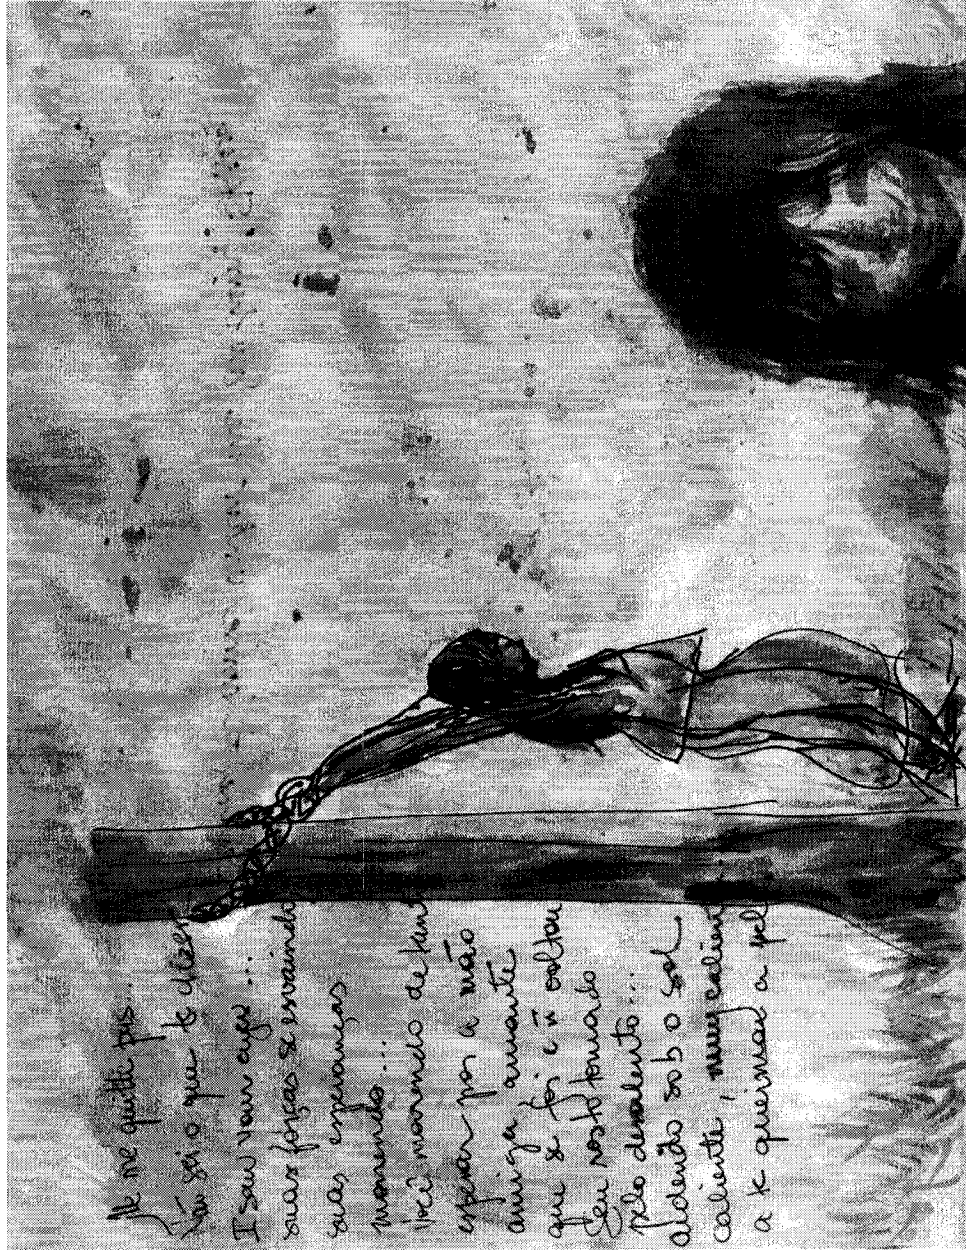 Ne me quitte pas...
Não sei o que te dizer
I saw your eyes ...
suas forças se esvaindo
suas esperanças
morrendo...
Você morrendo de tanto
esperar por a mão
amiga, amante
que se foi e ñ voltou
Seu rosto tomado
pelo desalento...
Ardendo sob o sol
caliente, muy caliente
a te queimar a pele